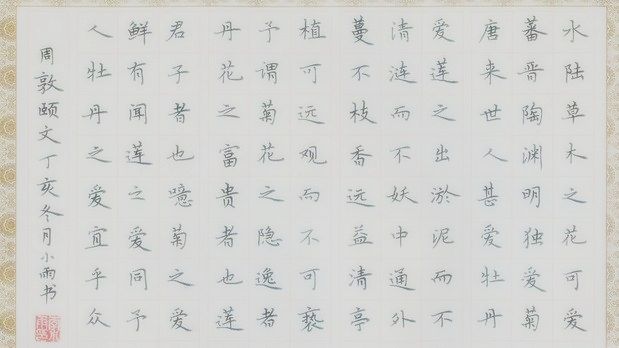 水陆草木之花可爱
蕃晋陶渊明独爱菊
唐来世人甚爱牡丹
爱莲之出淤泥而不
清涟而不妖中通外
蔓不枝香远益清亭
植可远观而不可亵
予谓菊花之隐逸者
丹花之富贵者也莲
君子者也噫菊之爱
鲜有闻莲之爱同予
人牡丹之爱宜乎众
周敦颐文丁亥冬月小雨书